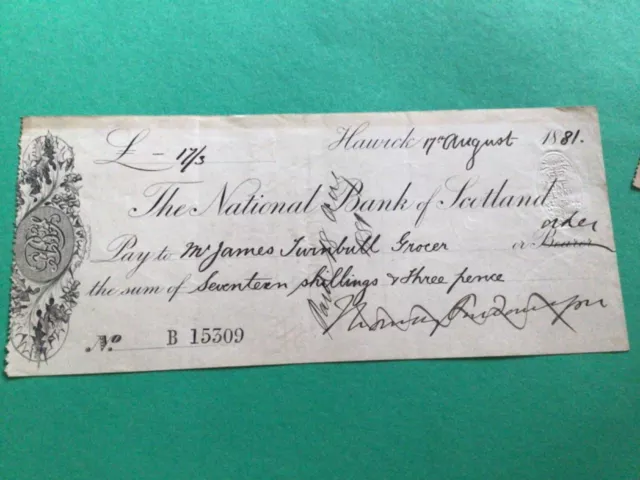 £ - 17/3
Hawick 17th August 1881.
The National Bank of Scotland
order
Pay to Mr James Turnbull Grocer or Bearer
the sum of Seventeen shillings & three pence
Paid 18 Aug 81
Thomas
No B 15309